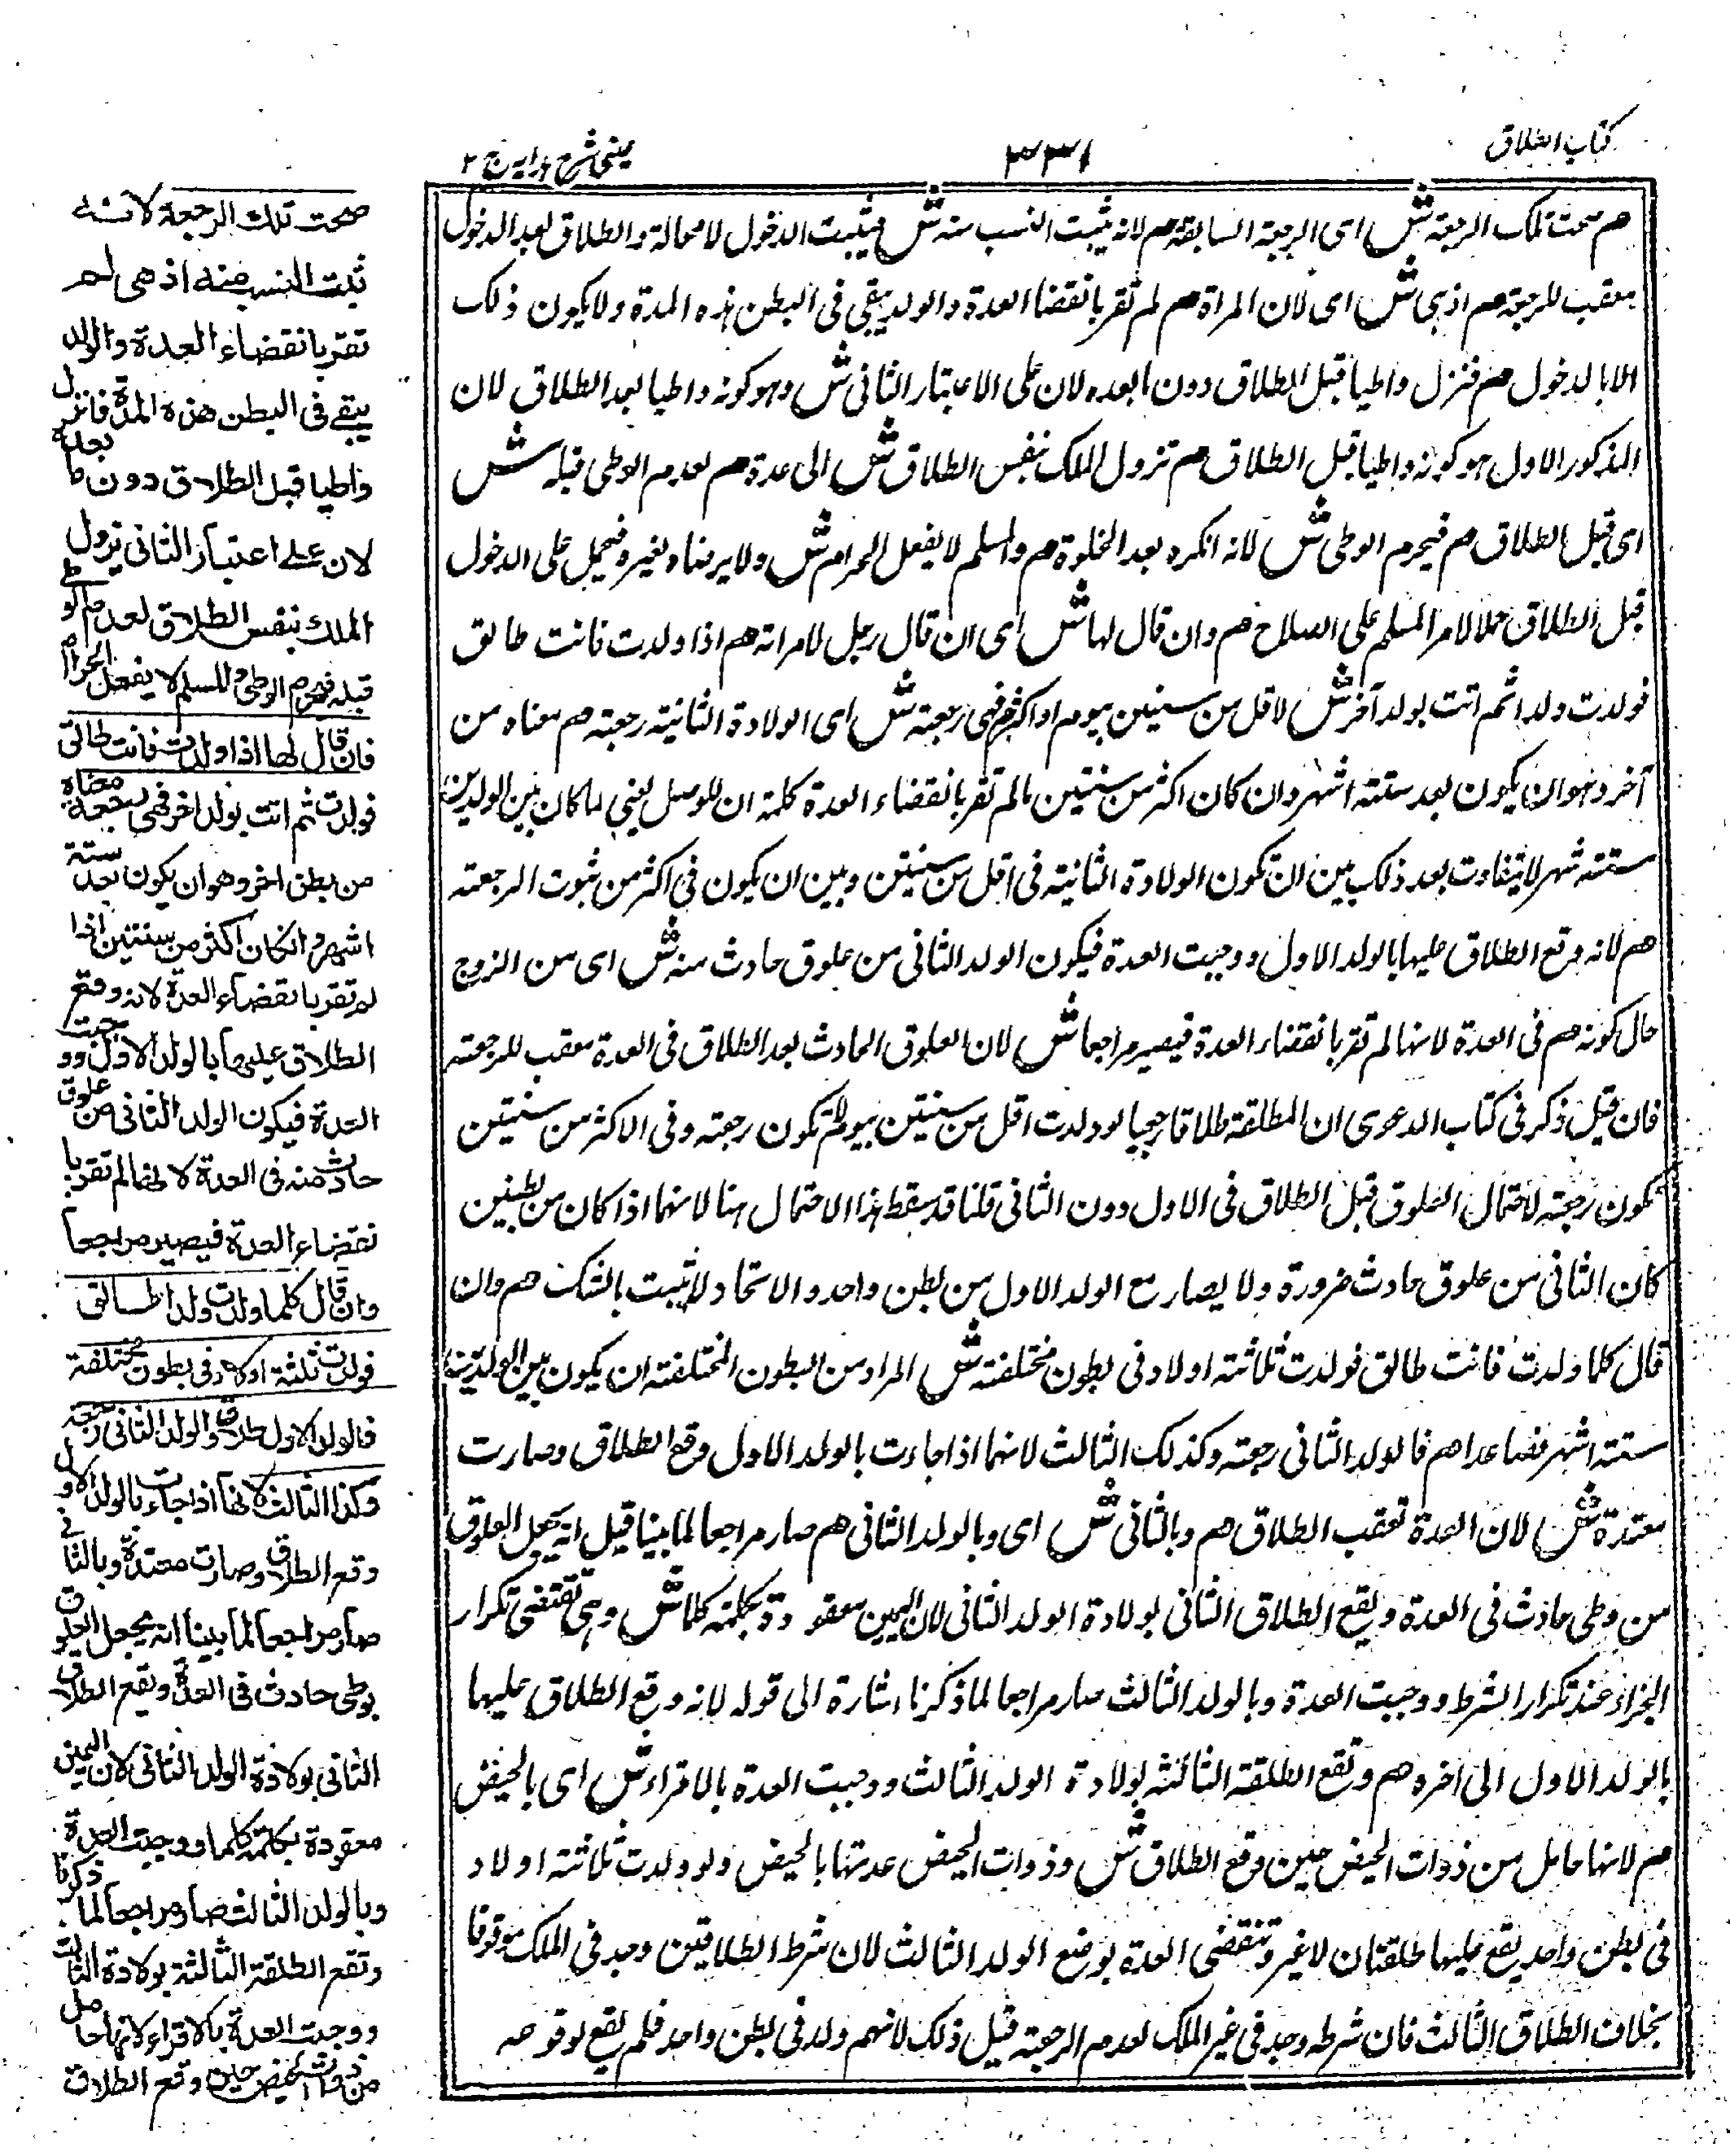 كتاب الطلاق
٣٣١
عينى شرح هدايه ج ٢
هم صحت تلك الرجعة ش اى الرجعة السابقة هم لانه يثبت النسب منه ش فيثبت الدخول لا محالة والطلاق بعد الدخول
معقب للرجعة هم اذ هى ش اى لان المراة هم لم تقر بانقضا العدة والولد يبقى فى البطن هذه المدة ولا يكون ذلك
الا بالدخول هم فنزل واطيا قبل الطلاق دون ما بعده لان على الاعتبار الثانى ش وهو كونه واطيا بعد الطلاق لان
المذكور الاول هو كونه واطيا قبل الطلاق هم تزول الملك بنفس الطلاق ش الى عدة هم لعدم الوطى قبله ش
اى قبل الطلاق هم فيحرم الوطى ش لانه انكره بعد الخلوة هم والمسلم لا يفعل الحرام ش ولا يرضاه لغيره فيحمل على الدخول
قبل الطلاق حملا لامر المسلم على الصلاح هم وان قال لها ش اى ان قال رجل لامراته هم اذا ولدت فانت طالق
فولدت ولدا ثم اتت بولد آخر ش لاقل من سنتين بيوم او اكثر هم فهى رجعة ش اى الولادة الثانية رجعة هم معناه من
آخر وهو ان يكون بعد ستة اشهر وان كان اكثر من سنتين ما لم تقر بانقضاء العدة كلمة ان للوصل يعنى لما كان بين الولدين
ستة شهر لا يتفاوت بعد ذلك بين ان تكون الولادة الثانية فى اقل من سنتين وبين ان يكون فى اكثر من ثبوت الرجعة
هم لانه وقع الطلاق عليها بالولد الاول ووجبت العدة فيكون الولد الثانى من علوق حادث منه ش اى من الزوج
حال كونه هم فى العدة لانها لم تقر بانقضاء العدة فيصير مراجعا ش لان العلوق الحادث بعد الطلاق فى العدة معقب للرجعة
فان قيل ذكر فى كتاب الدعوى ان المطلقة طلاقا رجعيا لو ولدت اقل من سنتين بيوم لم تكون رجعة وفى الاكثر من سنتين
تكون رجعة لاحتمال العلوق قبل الطلاق فى الاول دون الثانى قلنا قد سقط هذا الاحتمال هنا لانهما اذا كان من بطنين
كان الثانى من علوق حادث ضرورة ولا يصار مع الولد الاول من بطن واحد والاتحاد لا يثبت بالشك هم وان
قال كلما ولدت فانت طالق فولدت ثلاثة اولاد فى بطون مختلفة ش المراد من البطون المختلفة ان يكون بين الولدين
ستة اشهر فصاعدا هم فالولد الثانى رجعة وكذلك الثالث لانها اذا جاءت بالولد الاول وقع الطلاق وصارت
معتدة ش لان العدة تعقب الطلاق هم وبالثانى ش اى وبالولد الثانى هم صار مراجعا لما بينا قيل انه يجعل العلوق
من وطى حادث فى العدة ويقع الطلاق الثانى بولادة الولد الثانى لان اليمين معقودة بكلمة كلما ش وهى تقتضى تكرار
الجزاء عند تكرار الشرط ووجبت العدة وبالولد الثالث صار مراجعا لما ذكرنا اشارة الى قوله لانه وقع الطلاق عليها
بالولد الاول الى آخره هم وتقع الطلقة الثالثة بولادة الولد الثالث ووجبت العدة بالاقراء ش اى بالحيض
هم لانها حامل من ذوات الحيض حين وقع الطلاق ش وذوات الحيض عدتها بالحيض ولو ولدت ثلاثة اولاد
فى بطن واحد يقع عليها طلقتان لا غير وتنقضى العدة بوضع الولد الثالث لان شرط الطلاقين وجد فى الملك موقوفا
بخلاف الطلاق الثالث فان شرطه وجد فى غير الملك لعدم الرجعة قبل ذلك لانهم ولد فى بطن واحد فلم يقع لوقوعه
صحت تلك الرجعة لانه
ثبت النسب منه اذ هى لم
تقر بانقضاء العدة والولد
يبقے فى البطن هذه المدة فانزل
واطيا قبل الطلاق دون ما بعده
لان على اعتبار الثانى يزول
الملك بنفس الطلاق لعدم الوطى
قبله فيحرم الوطى والمسلم لا يفعل الحرام
فان قال لها اذا ولدت فانت طالق
فولدت ثم اتت بولد اخر فهى رجعة معناه
من بطن اخر وهو ان يكون بعد ستة
اشهر وانكان اكثر من سنتين اذا
لم تقر بانقضاء العدة لانه وقع
الطلاق عليها بالولد الاول ووجبت
العدة فيكون الولد الثانى من علوق
حادث منه فى العدة لانها لم تقر با
نقضاء العدة فيصير مراجعا
وان قال كلما ولدت ولدا طالق
فولدت ثلثة اولاد فى بطون مختلفة
فالولد الاول طلاق والولد الثانى رجعة
وكذا الثالث لانها اذا جاءت بالولد الاول
وقع الطلاق وصارت معتدة وبالثانى
صار مراجعا لما بينا انه يجعل العلوق
بوطى حادث فى العدة ويقع الطلاق
الثانى بولادة الولد الثانى لان اليمين
معقودة بكلمة كلما ووجبت العدة
وبالولد الثالث صار مراجعا لما ذكرنا
وتقع الطلقة الثالثة بولادة الثالث
ووجبت العدة بالاقراء لانها حامل
من ذوات الحيض حين وقع الطلاق